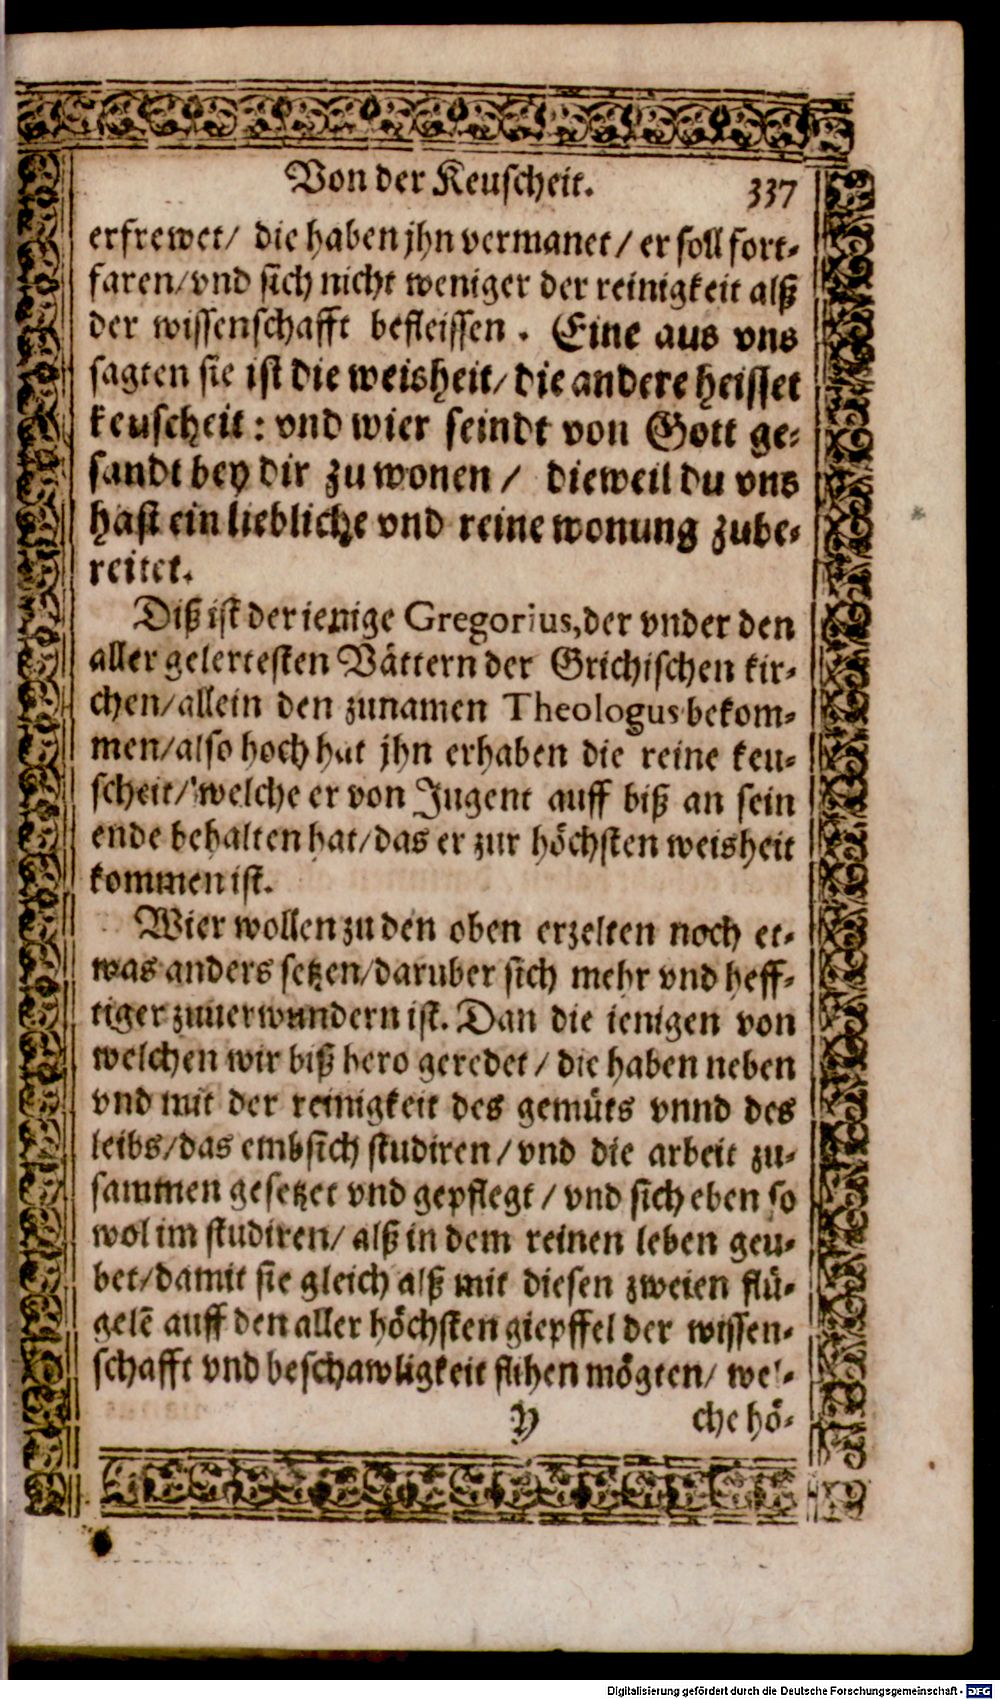 Von der Keuscheit. 337
erfrewet/ die haben jhn vermanet/ er soll fort-
faren/vnd sich nicht weniger der reinigkeit alß
der wissenschafft befleissen. Eine aus vns
sagten sie ist die weisheit/ die andere heisset
keuscheit: vnd wier seindt von Gott ge-
sandt bey dir zu wonen/ dieweil du vns
hast ein liebliche vnd reine wonung zube-
reitet.
Diß ist der jenige Gregorius, der vnder den
aller gelertesten Vättern der Grichischen kir-
chen/allein den zunamen Theologus bekom-
men/also hoch hat jhn erhaben die reine keu-
scheit/ welche er von Jugent auff biß an sein
ende behalten hat/das er zur höchsten weisheit
kommen ist.
Wier wollen zu den oben erzelten noch et-
was anders setzen/daruber sich mehr vnd heff-
tiger zuuerwundern ist. Dan die ienigen von
welchen wir biß hero geredet/ die haben neben
vnd mit der reinigkeit des gemüts vnnd des
leibs/das embsich studiren/ vnd die arbeit zu-
sammen gesetzet vnd gepflegt/ vnd sich eben so
wol im studiren/ alß in dem reinen leben geu-
bet/damit sie gleich alß mit diesen zweien flü-
gelē auff den aller höchsten giepffel der wissen-
schafft vnd beschawligkeit flihen mögten/ wel-
Y che hö-
Digitalisierung gefördert durch die Deutsche Forschungsgemeinschaft - DFG